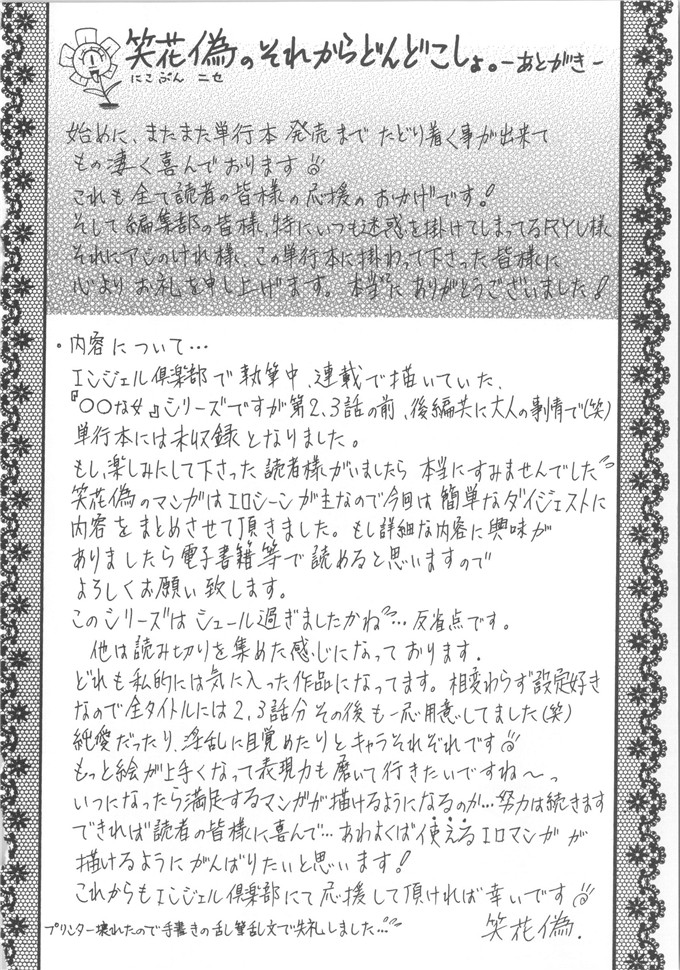 笑花偽のそれからどんどこしょ。-あとがき-
にこぷん ニセ
始めに、またまた単行本 発売まで たどり着く事が出来て
もの凄く喜んでおります
これも全て読者の皆様の応援のおかげです!
そして編集部の皆様、特にいつも迷惑を掛けてしまってるRYU様
それにアシのけれ様、この単行本に掛わって下さった皆様に
心よりお礼を申し上げます。本当にありがとうございました!
・内容について…
エンジェル倶楽部で執筆中、連載で描いていた、
『○○な女』シリーズですが第2,3話の前、後編共に大人の事情で(笑)
単行本には未収録となりました。
もし、楽しみにして下さった読者様がいましたら 本当にすみませんでした
笑花偽のマンガはエロシーンが主なので今回は簡単なダイジェストに
内容をまとめさせて頂きました。もし詳細な内容に興味が
ありましたら電子書籍等で読めると思いますので
よろしくお願い致します。
このシリーズはシュール過ぎましたかね…反省点です。
他は読み切りを集めた感じになっております.
どれも私的には気に入った作品になってます。相変わらず設定好き
なので全タイトルには2,3話分その後も一応用意してました(笑)
純愛だったり、淫乱に目覚めたりとキャラそれぞれです
もっと絵が上手くなって表現力も磨いて行きたいですね〜っ
いつになったら満足するマンガが描けるようになるのか…努力は続きます
できれば読者の皆様に喜んで…あわよくば使えるエロマンガが
描けるようにがんばりたいと思います!
これからもエンジェル倶楽部にて応援して頂ければ幸いです
プリンター壊れたので手書きの乱筆乱文で失礼しました…
笑花偽.